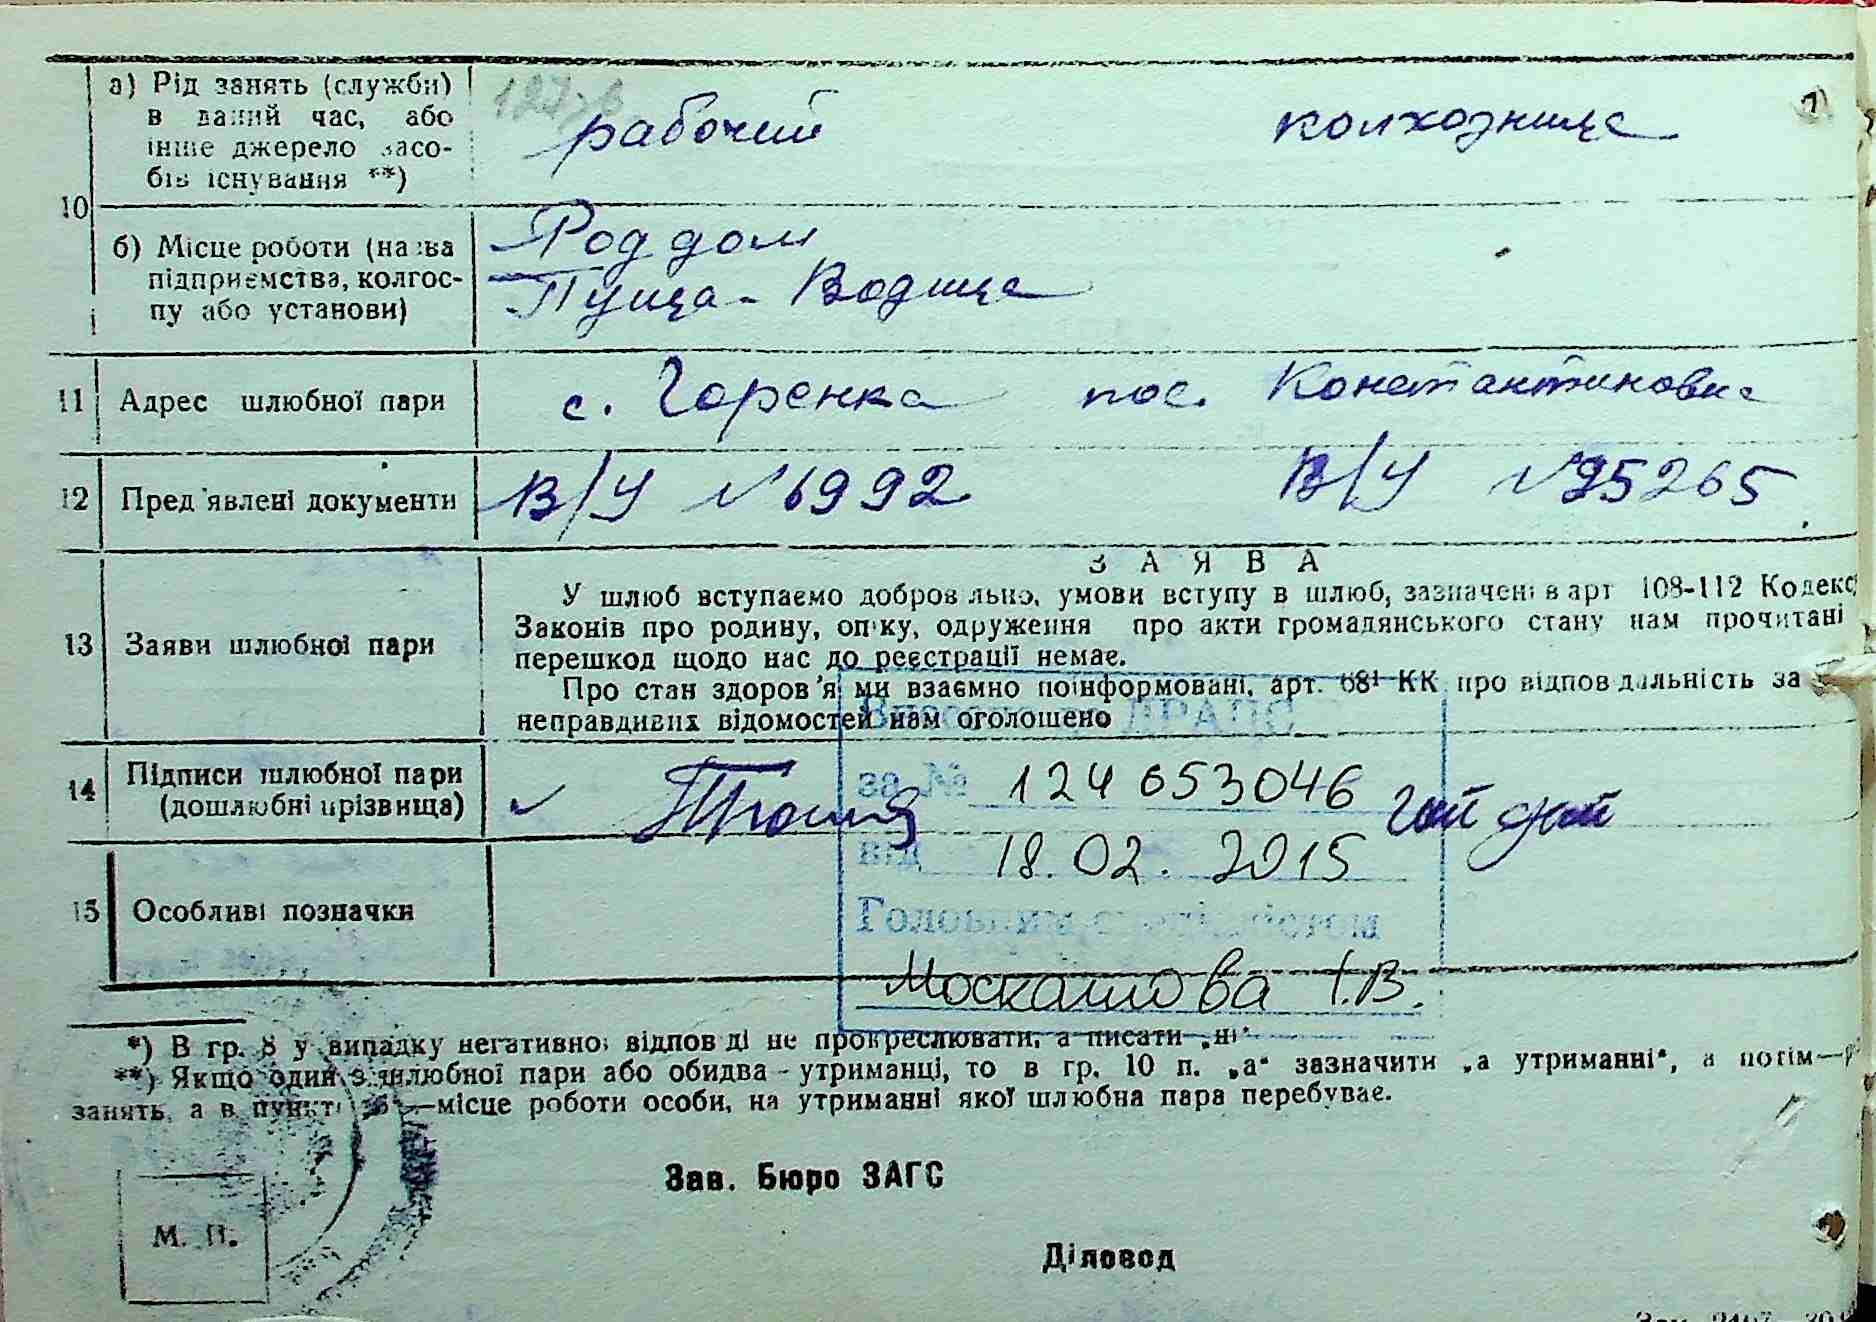 а) Рід занять (служби)
в даний час, або
інше джерело засо-
бів існування **)
рабочий колхозница
10
б) Місце роботи (назва
підприємства, колгос-
пу або установи)
Роддом
Пуща-Водица
11 Адрес шлюбної пари с. Горенка пос. Константиновка
12 Пред'явлені документи В/У №6992 В/У №95265
З А Я В А
13 Заяви шлюбної пари
У шлюб вступаємо добров льно, умови вступу в шлюб, зазначені в арт 108-112 Кодекс
Законів про родину, опіку, одруження про акти громадянського стану нам прочитані
перешкод щодо нас до реєстрації немає.
Про стан здоров'я ми взаємно поінформовані, арт. 68¹ КК про відповідальність за
неправдивих відомостей нам оголошено
Внесено до ДРАЦС
14 Підписи шлюбної пари
(дошлюбні прізвища)
за № 124 653046
Гайдай
від 18.02.2015
15 Особливі позначки
Головним спеціалістом
І.В.
*) В гр. 8 у випадку негативної відповіді не прокреслювати, а писати „ні“
**) Якщо один з шлюбної пари або обидва - утриманці, то в гр. 10 п. „а“ зазначити „а утриманні“, а потім—р
занять, а в пункті „б“—місце роботи особи, на утриманні якої шлюбна пара перебуває.
Зав. Бюро ЗАГС
М. П.
Діловод